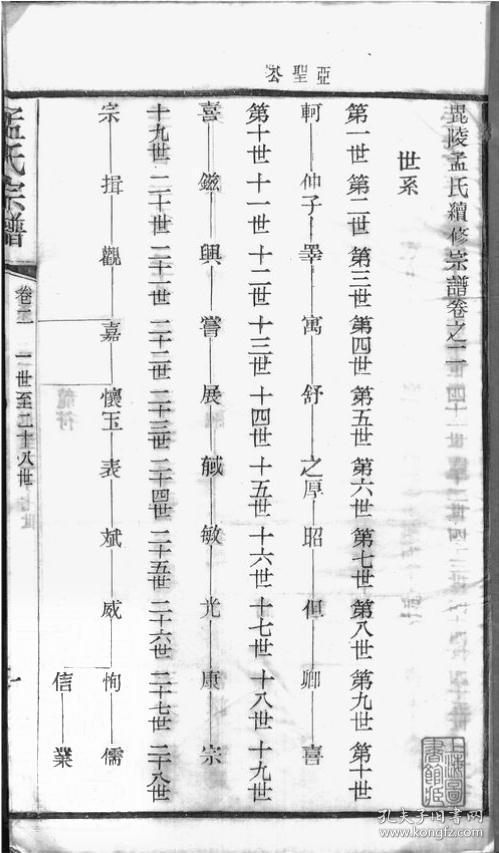 亞聖公
毘陵孟氏續修宗譜卷之二
世系
第一世 第二世 第三世 第四世 第五世 第六世 第七世 第八世 第九世 第十世
軻 仲子 睪 寓 舒 之厚 昭 但 卿 喜
第十世 十一世 十二世 十三世 十四世 十五世 十六世 十七世 十八世 十九世
喜 鎡 興 嘗 展 敏 光 康 宗
十九世 二十世 二十一世 二十二世 二十三世 二十四世 二十五世 二十六世 二十七世 二十八世
宗 揖 觀 嘉 懷玉 表 斌 威 恂 儒
信 業
孟氏宗譜
卷二 一世至二十八世
上海圖書館藏
孔夫子旧书网
www.kongfz.com